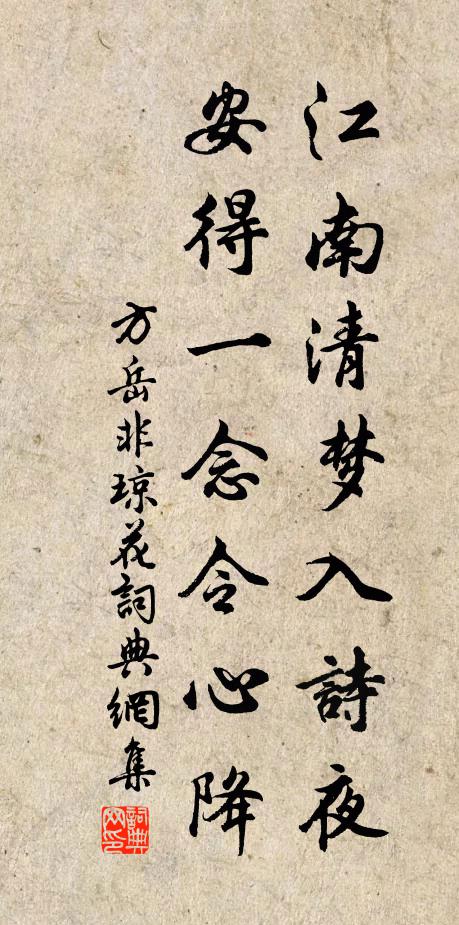 江南清梦入詩夜
安得一念令心降
方岳非琼花詞典網集
詞典网印